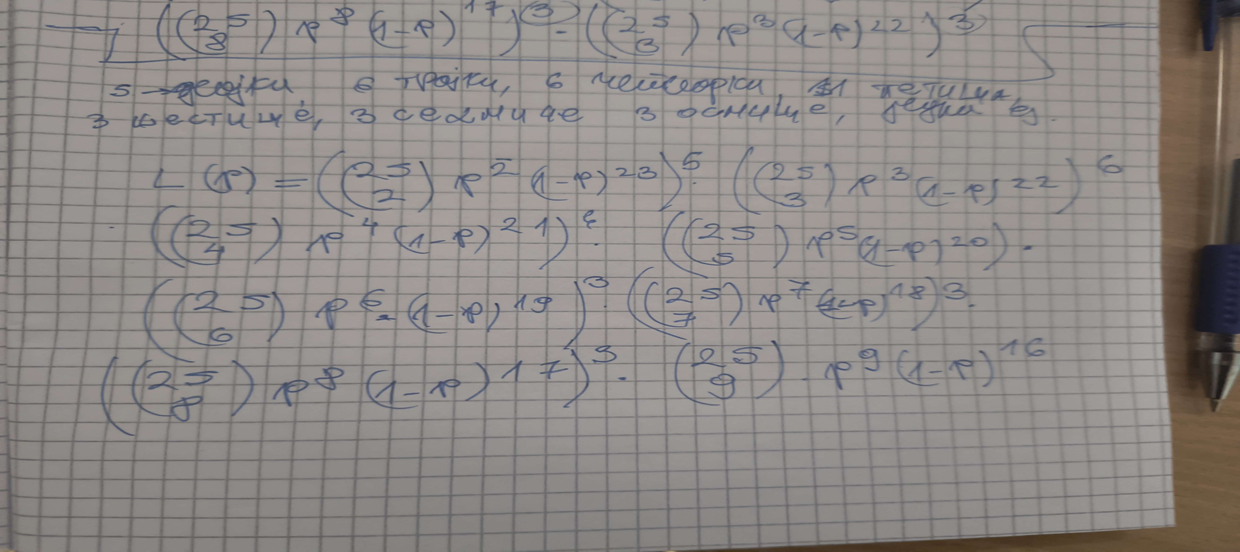 ((25 8) p^8 (1-p)^17)^3 · ((25 3) p^3 (1-p)^22)^3
5 двојки, 6 тројки, 6 четворки, 1 петица,
3 шестице, 3 седмице 3 осмице, једна 9.
L(p) = ((25 2) p^2 (1-p)^23)^5 · ((25 3) p^3 (1-p)^22)^6
· ((25 4) p^4 (1-p)^21)^6 · ((25 5) p^5 (1-p)^20) ·
((25 6) p^6 · (1-p)^19)^3 · ((25 7) p^7 (1-p)^18)^3 ·
((25 8) p^8 (1-p)^17)^3 · (25 9) · p^9 (1-p)^16